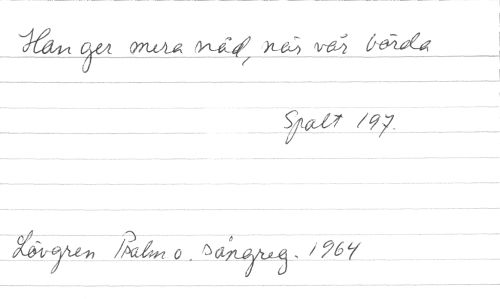 Han ger mera nåd, när vår börda
Spalt 197.
Lövgren Psalm o. sångreg. 1964